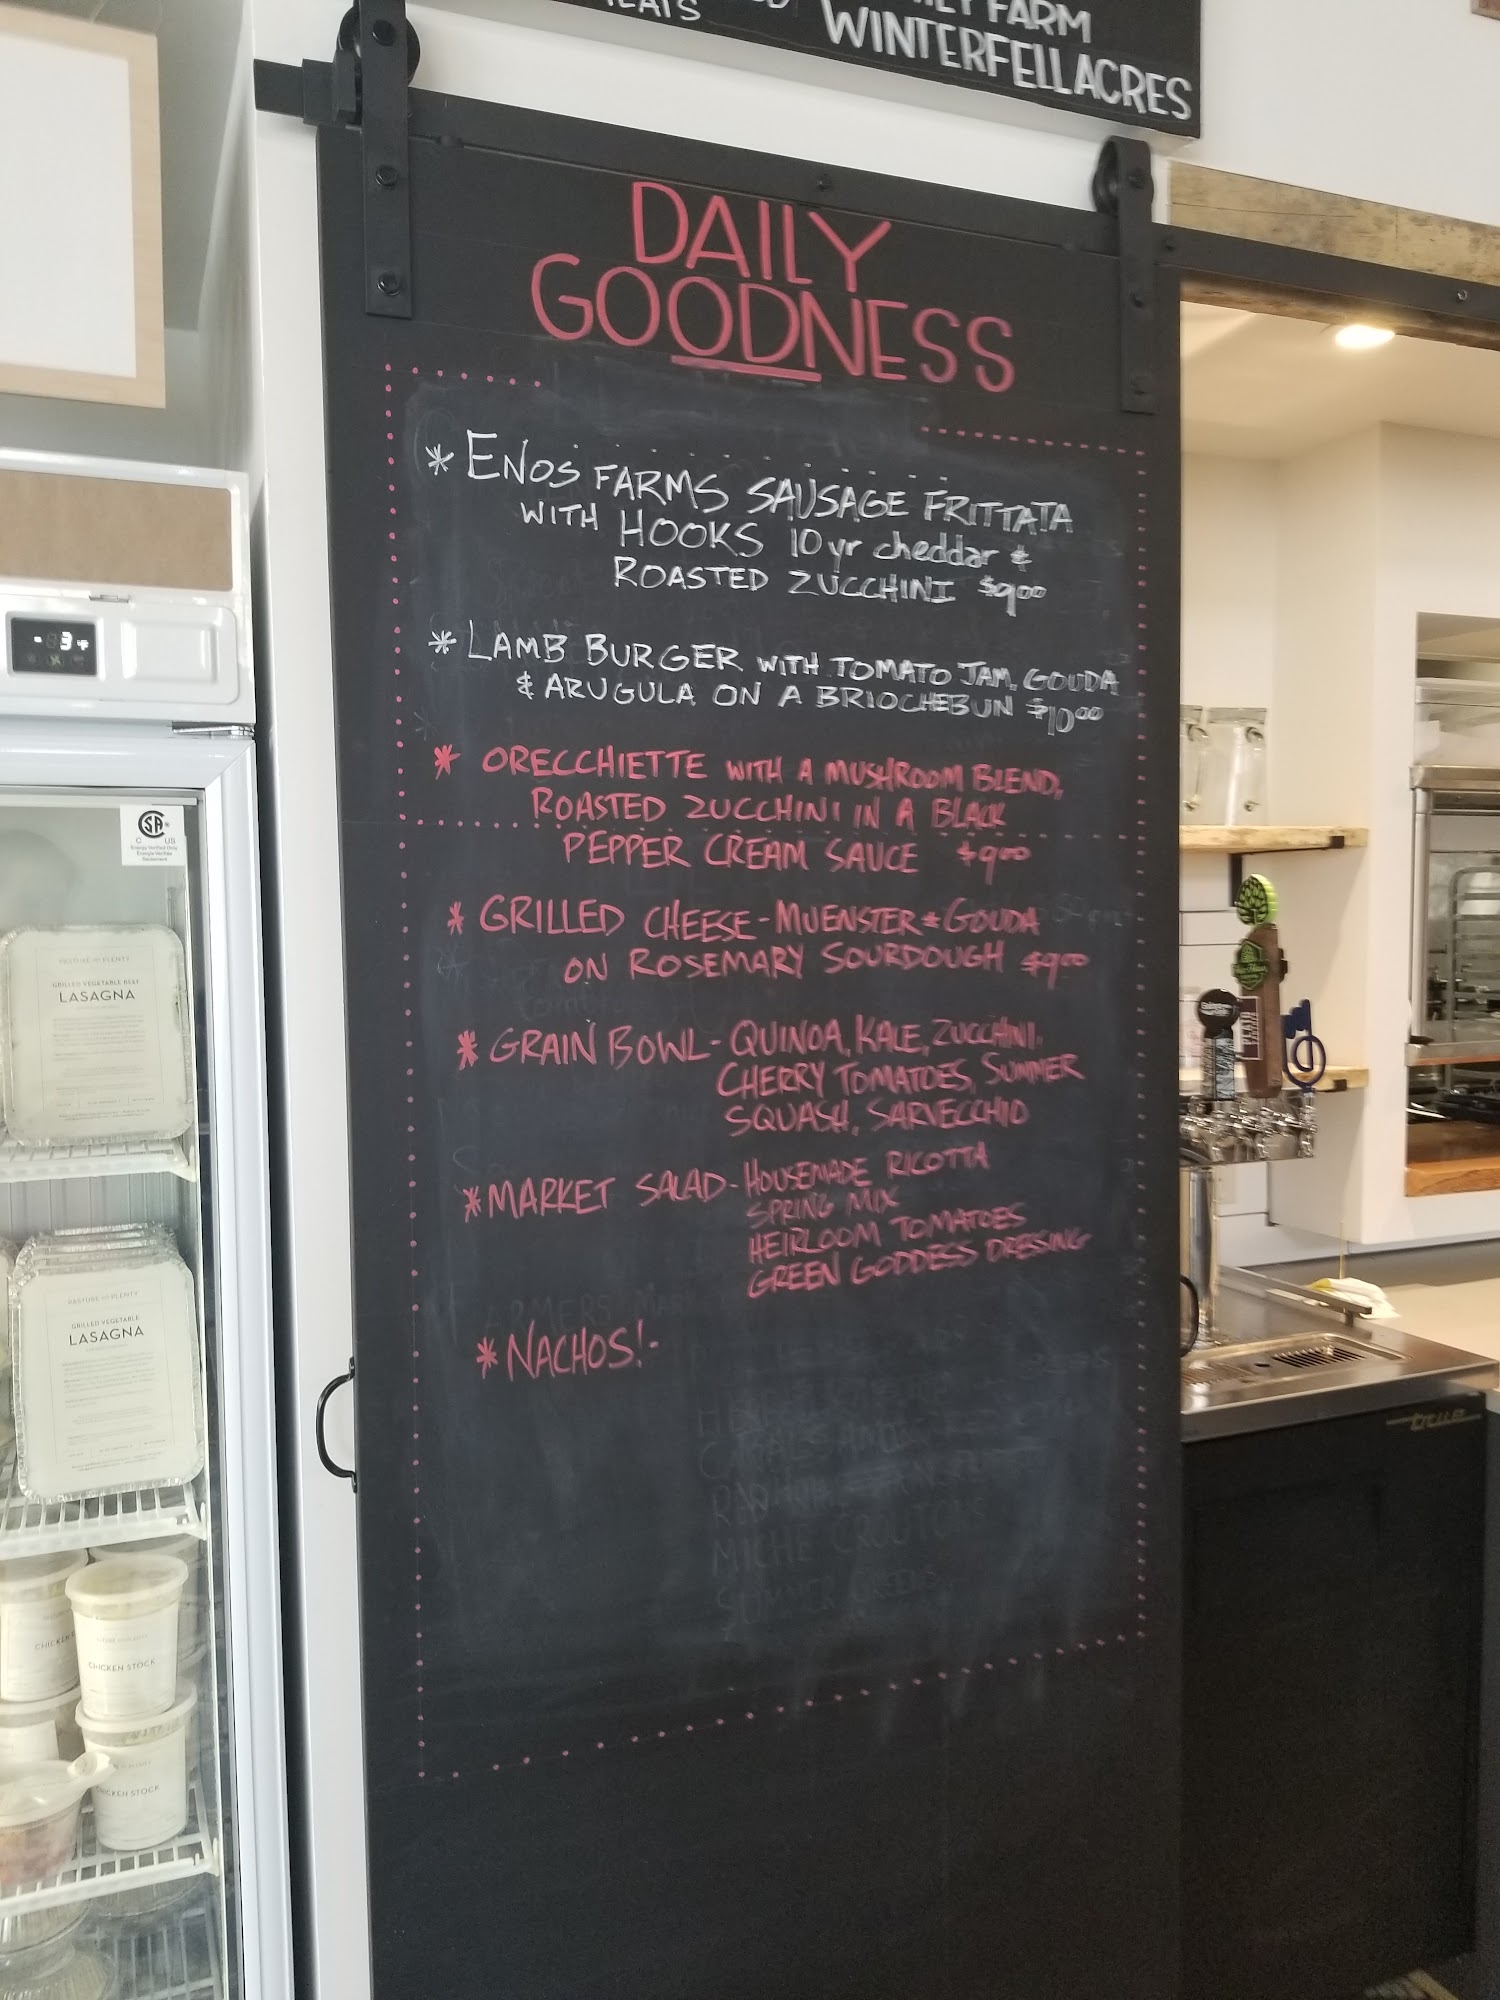 FARM
WINTERFELL ACRES
DAILY
GOODNESS
* ENOS FARMS SAUSAGE FRITTATA
WITH HOOKS 10 yr cheddar &
ROASTED ZUCCHINI $9.00
* LAMB BURGER WITH TOMATO JAM, GOUDA
& ARUGULA ON A BRIOCHE BUN $10.00
* ORECCHIETTE WITH A MUSHROOM BLEND,
ROASTED ZUCCHINI IN A BLACK
PEPPER CREAM SAUCE $9.00
* GRILLED CHEESE - MUENSTER & GOUDA
ON ROSEMARY SOURDOUGH $9.00
* GRAIN BOWL - QUINOA, KALE, ZUCCHINI,
CHERRY TOMATOES, SUMMER
SQUASH, SARVECCHIO
* MARKET SALAD - HOUSEMADE RICOTTA
SPRING MIX
HEIRLOOM TOMATOES
GREEN GODDESS DRESING
* NACHOS! -
-3 °F
CSA
C US
Energy Verified Only
PASTURE AND PLENTY
GRILLED VEGETABLE BEEF
LASAGNA
PASTURE AND PLENTY
GRILLED VEGETABLE
LASAGNA
CHICKEN
CHICKEN STOCK
CHICKEN STOCK
MICHE CROUTONS